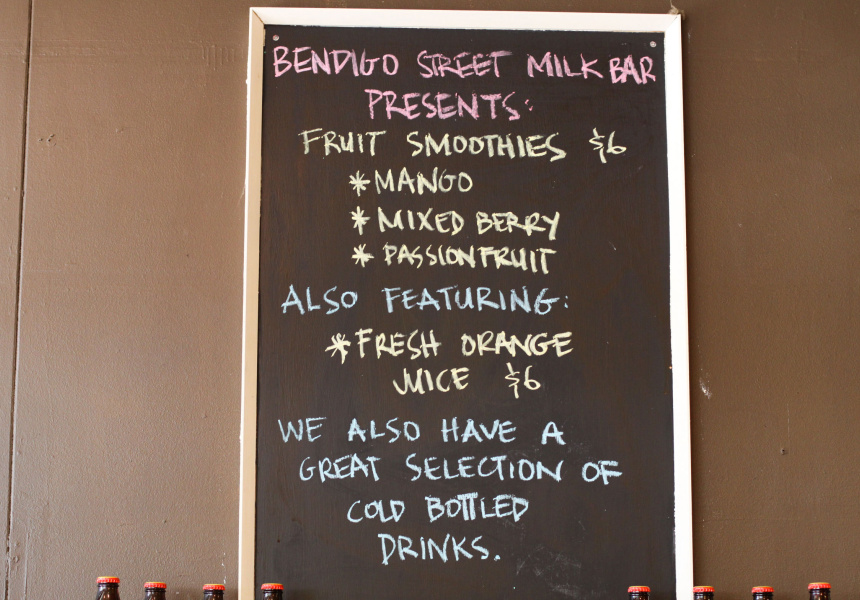 BENDIGO STREET MILK BAR
PRESENTS:
FRUIT SMOOTHIES $6
*MANGO
*MIXED BERRY
* PASSIONFRUIT
ALSO FEATURING:
*FRESH ORANGE
JUICE $6
WE ALSO HAVE A
GREAT SELECTION OF
COLD BOTTLED
DRINKS.